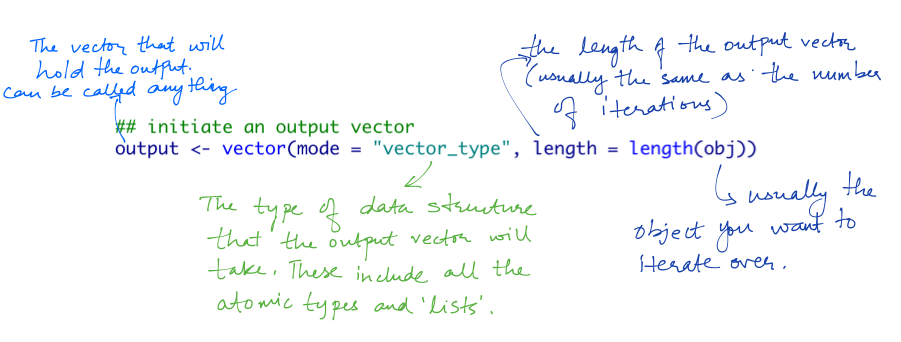 The vector that will
hold the output.
can be called anything
the length of the output vector
(usually the same as the number
of iterations)
## initiate an output vector
output <- vector(mode = "vector_type", length = length(obj))
The type of data structure
that the output vector will
take. These include all the
atomic types and 'lists'.
usually the
object you want to
iterate over.